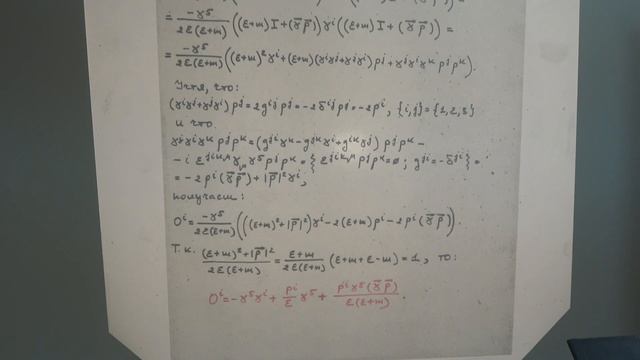 = -γ⁵/(2ε(ε+m)) ((ε+m)I+(γ⃗p⃗))γⁱ((ε+m)I+(γ⃗p⃗)) =
= -γ⁵/(2ε(ε+m)) ((ε+m)²γⁱ+(ε+m)(γⁱγʲ+γʲγⁱ)pʲ+γʲγⁱγᵏpʲpᵏ).
Учтя, что:
(γⁱγʲ+γʲγⁱ)pʲ=2gⁱʲpʲ=-2δⁱʲpʲ=-2pⁱ, {i,j}={1,2,3}
и что
γʲγⁱγᵏpʲpᵏ=(gʲⁱγᵏ-gʲᵏγⁱ+gⁱᵏγʲ)pʲpᵏ-
-iεʲⁱᵏᴹγ_Mγ⁵pʲpᵏ={εʲⁱᵏᴹpʲpᵏ=0; gʲⁱ=-δʲⁱ}=
=-2pⁱ(γ⃗p⃗)+|p⃗|²γⁱ,
получаем:
Oⁱ= -γ⁵/(2ε(ε+m)) (((ε+m)²+|p⃗|²)γⁱ-2(ε+m)pⁱ-2pⁱ(γ⃗p⃗)).
Т.к. ((ε+m)²+|p⃗|²)/(2ε(ε+m)) = (ε+m)/(2ε(ε+m)) (ε+m+ε-m)=1, то:
Oⁱ=-γ⁵γⁱ+ pⁱ/ε γ⁵+ pⁱγ⁵(γ⃗p⃗)/(ε(ε+m)).